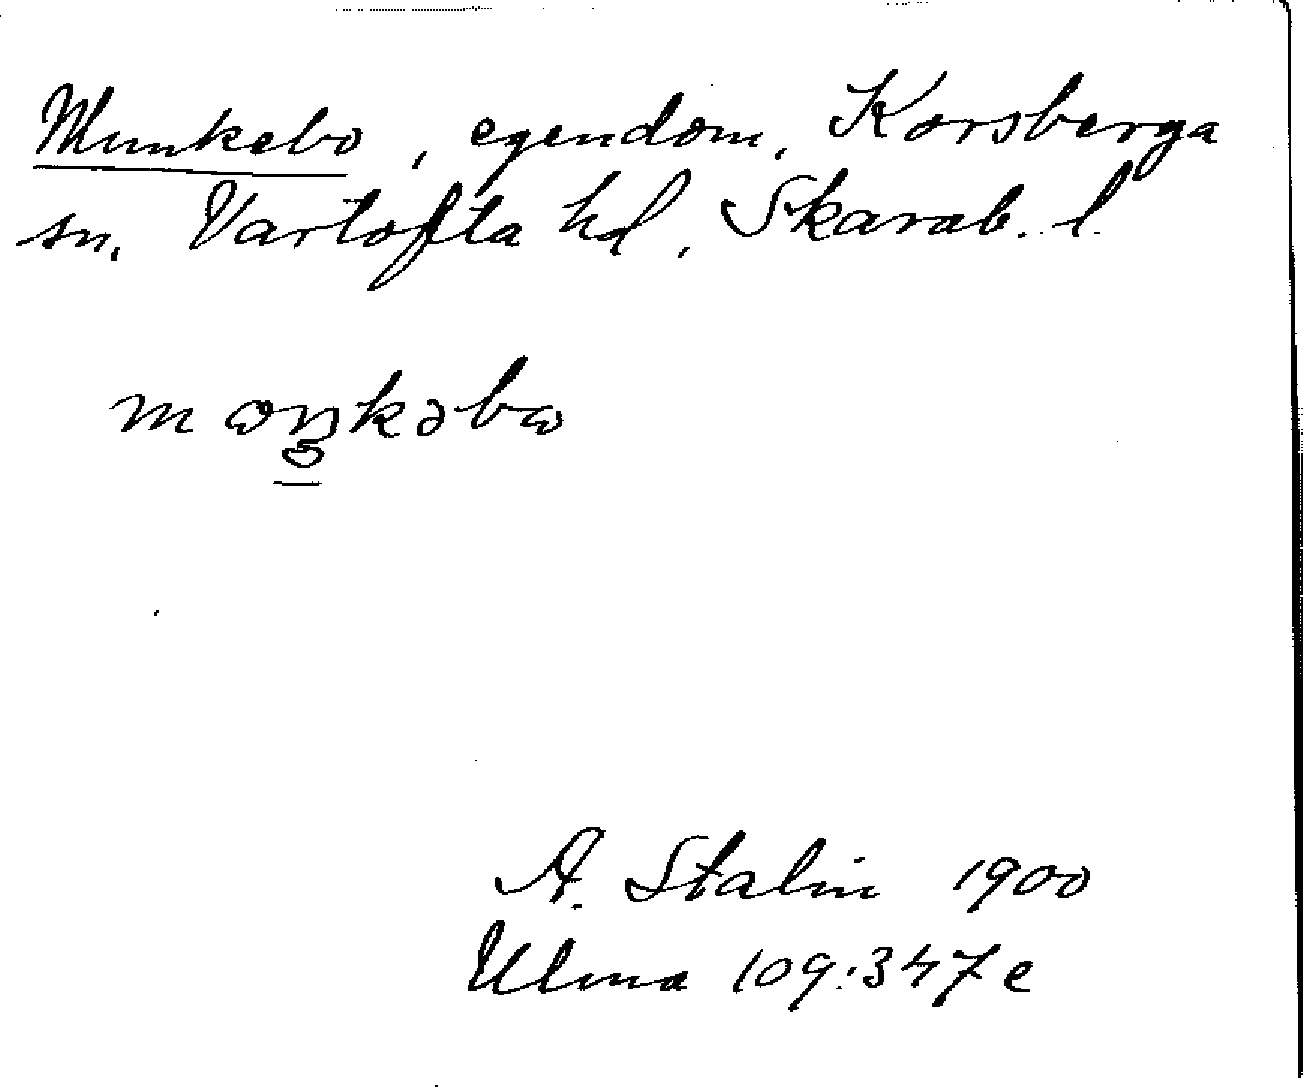 Munkebo, egendom, Korsberga
sn, Vartofta hd, Skarab. l.
mɷŋkəbɷ
A. Stalin 1900
Ulma 109:347 e